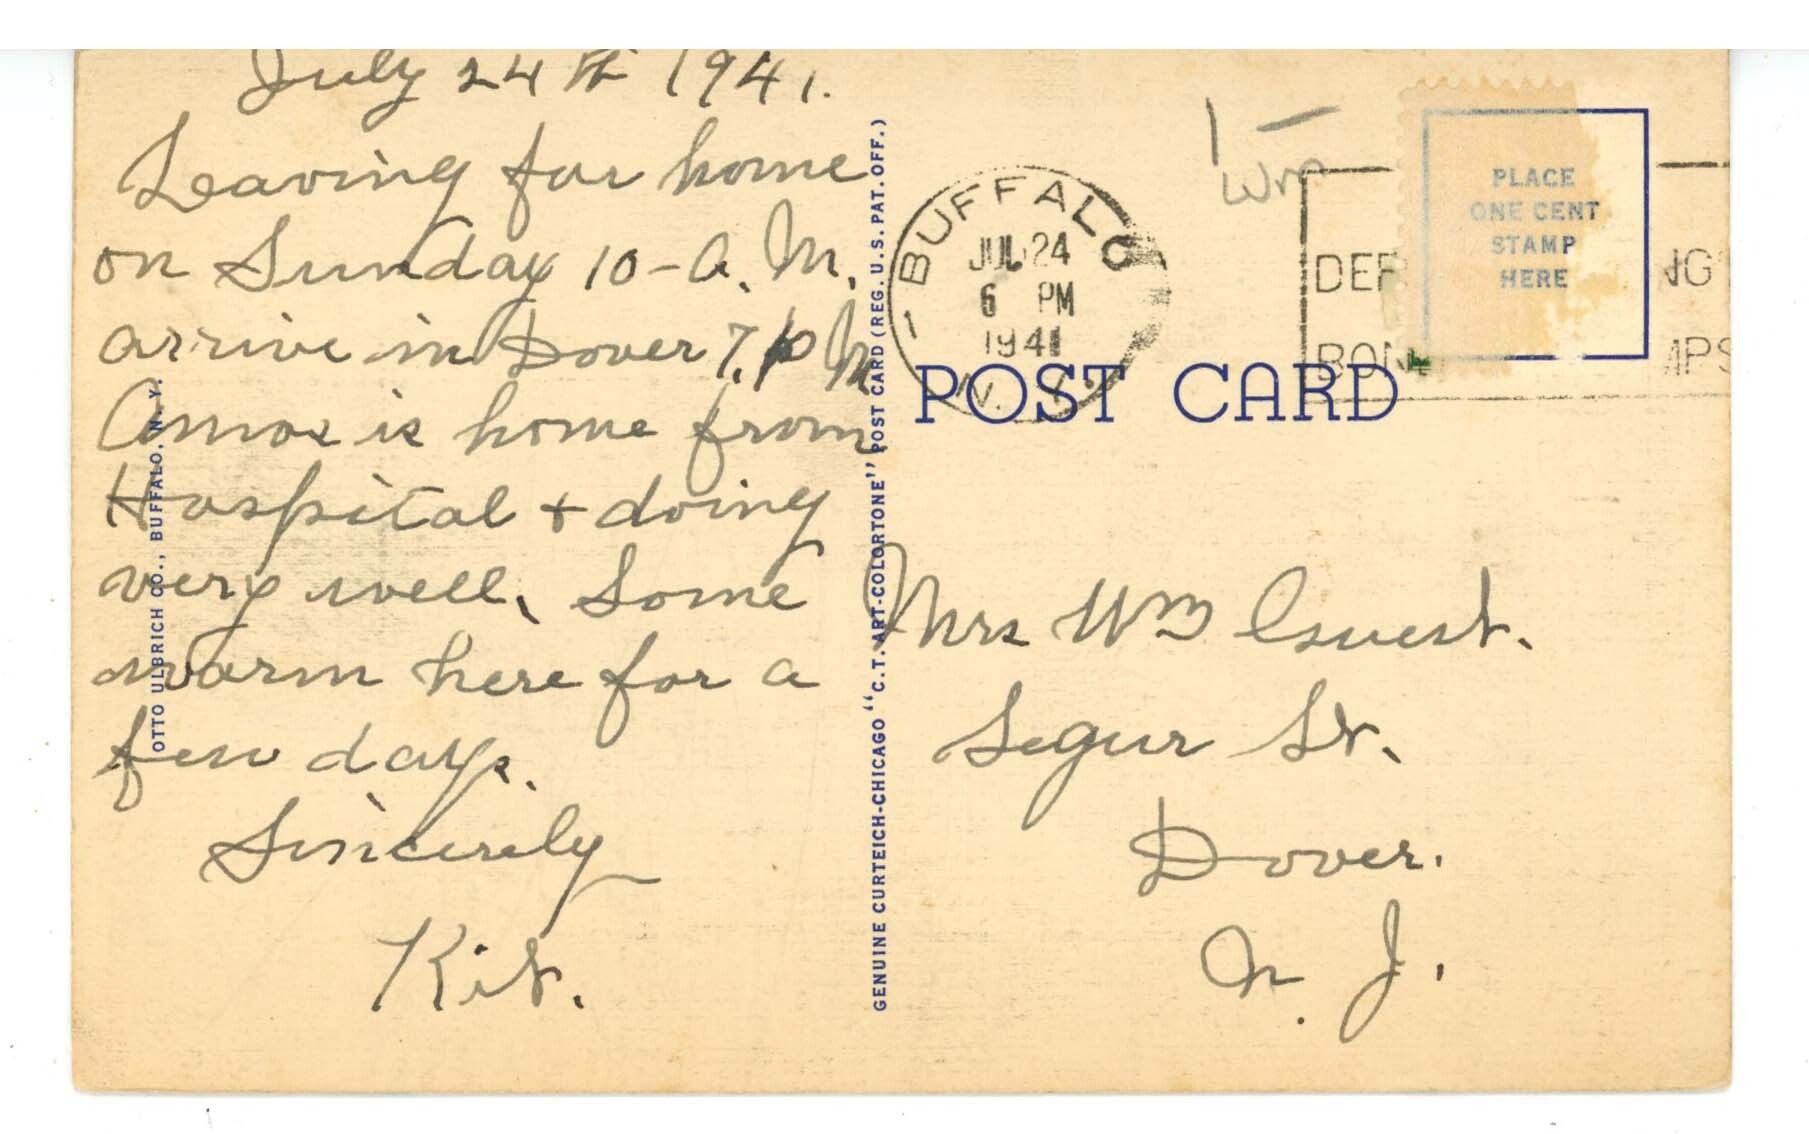 July 24th 1941.
Leaving for home
on Sunday 10-A.M.
arrive in Dover 7. P M
Amos is home from
Hospital + doing
very well. Some
warm here for a
few days.
Sincerily
Kit.
OTTO ULBRICH CO., BUFFALO, N. Y.
GENUINE CURTEICH-CHICAGO "C. T. ART-COLORTONE" POST CARD (REG. U. S. PAT. OFF.)
BUFFALO
JUL 24
6 PM
1941
N. Y.
PLACE
ONE CENT
STAMP
HERE
POST CARD
Mrs Wm
Segur St.
Dover.
N. J.